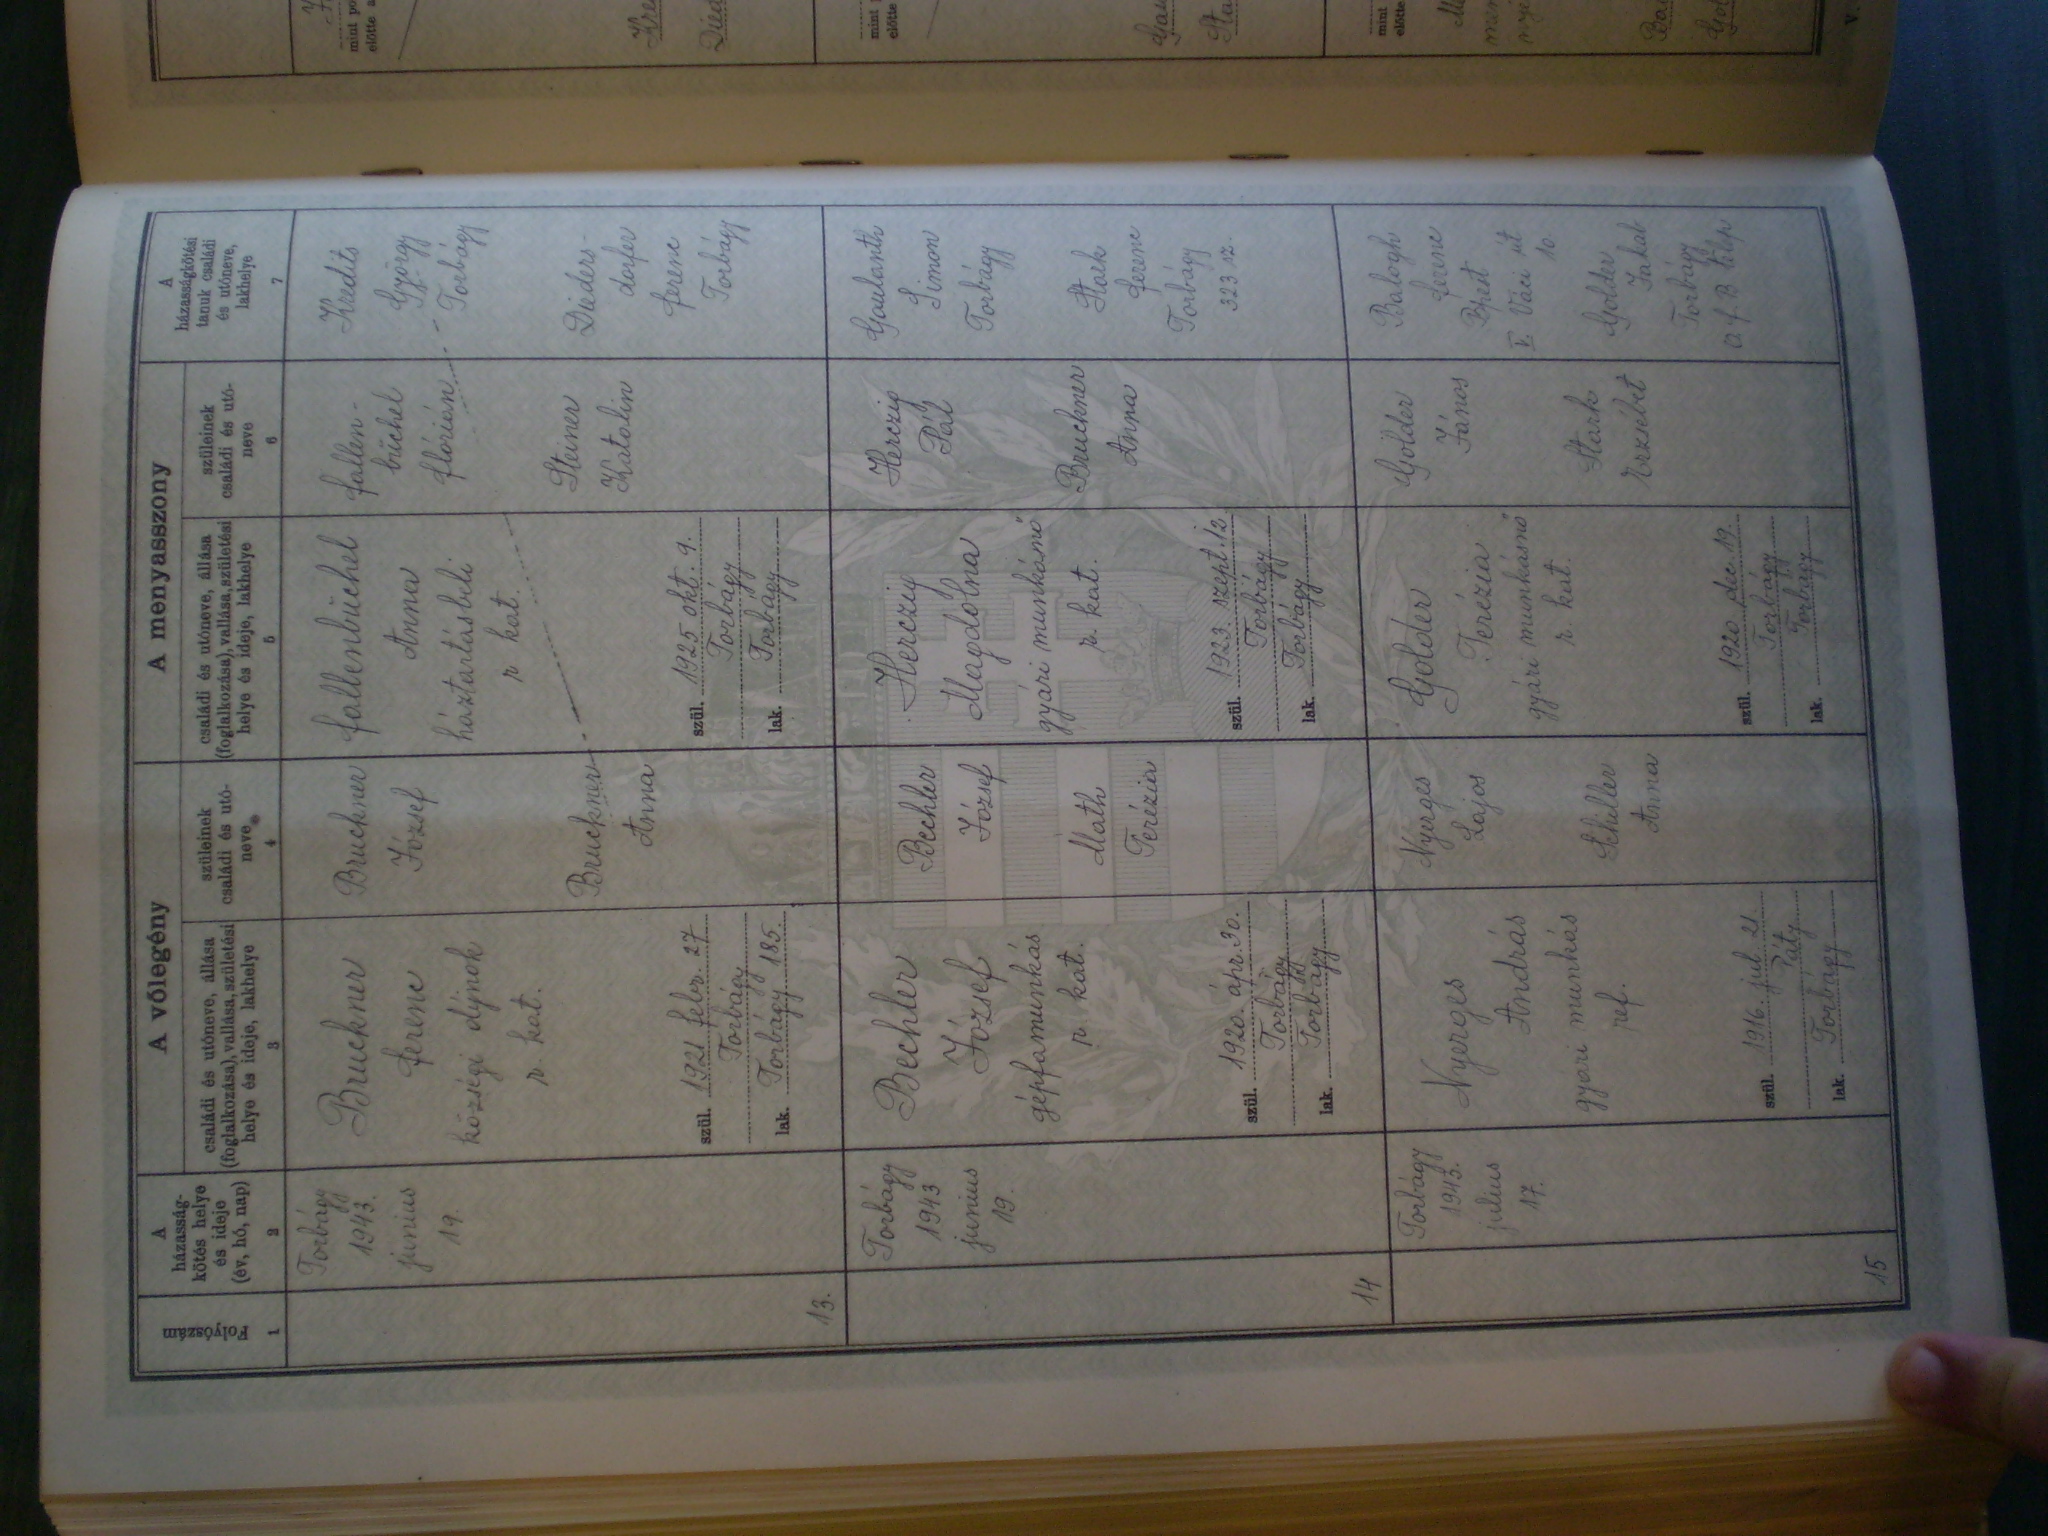 Folyószám
1
A
házasság-
kötés helye
és ideje
(év, hó, nap)
2
A vőlegény
családi és utóneve, állása
(foglalkozása), vallása, születési
helye és ideje, lakhelye
3
szüleinek
családi és utó-
neve
4
A menyasszony
családi és utóneve, állása
(foglalkozása), vallása, születési
helye és ideje, lakhelye
5
szüleinek
családi és utó-
neve
6
A
házasságkötési
tanuk családi
és utóneve,
lakhelye
7
13.
Torbágy
1943.
junius
19.
Bruckner
Ferenc
községi díjnok
r. kat.
szül. 1921 febr. 27
Torbágy
lak. Torbágy 185.
Bruckner
József
Bruckner
Anna
Fallenbüchel
Anna
háztartásbeli
r kat.
szül. 1925 okt. 9.
Torbágy
lak. Torbágy
Fallen-
büchel
Flórián
Steiner
Katalin
György
Torbágy
Dieders-
dorfer
Ferenc
Torbágy
14
Torbágy
1943
junius
19.
Bechler
József
gépfamunkás
r. kat.
szül. 1920. ápr. 30.
Torbágy
lak. Torbágy
Bechler
József
Math
Terézia
Herczig
Magdolna
gyári munkásnő
r. kat.
szül. 1923. szept. 12.
Torbágy
lak. Torbágy
Herczig
Pál
Bruckner
Anna
Simon
Torbágy
Stark
Ferenc
Torbágy
323 sz.
15
Torbágy
1943.
julius
17.
Nyerges
András
gyári munkás
ref.
szül. 1916. jul. 21.
Páty
lak. Torbágy
Nyerges
Lajos
Schiller
Anna
Golder
Terézia
gyári munkásnő
r. kat.
szül. 1920. dec. 19.
Torbágy
lak. Torbágy
Golder
János
Stark
Erzsébet
Balogh
Ferenc
Bpest
V. Váci út
10.
Golder
Jakab
Torbágy
mint
előtte a
mint
mint
előtte
V.